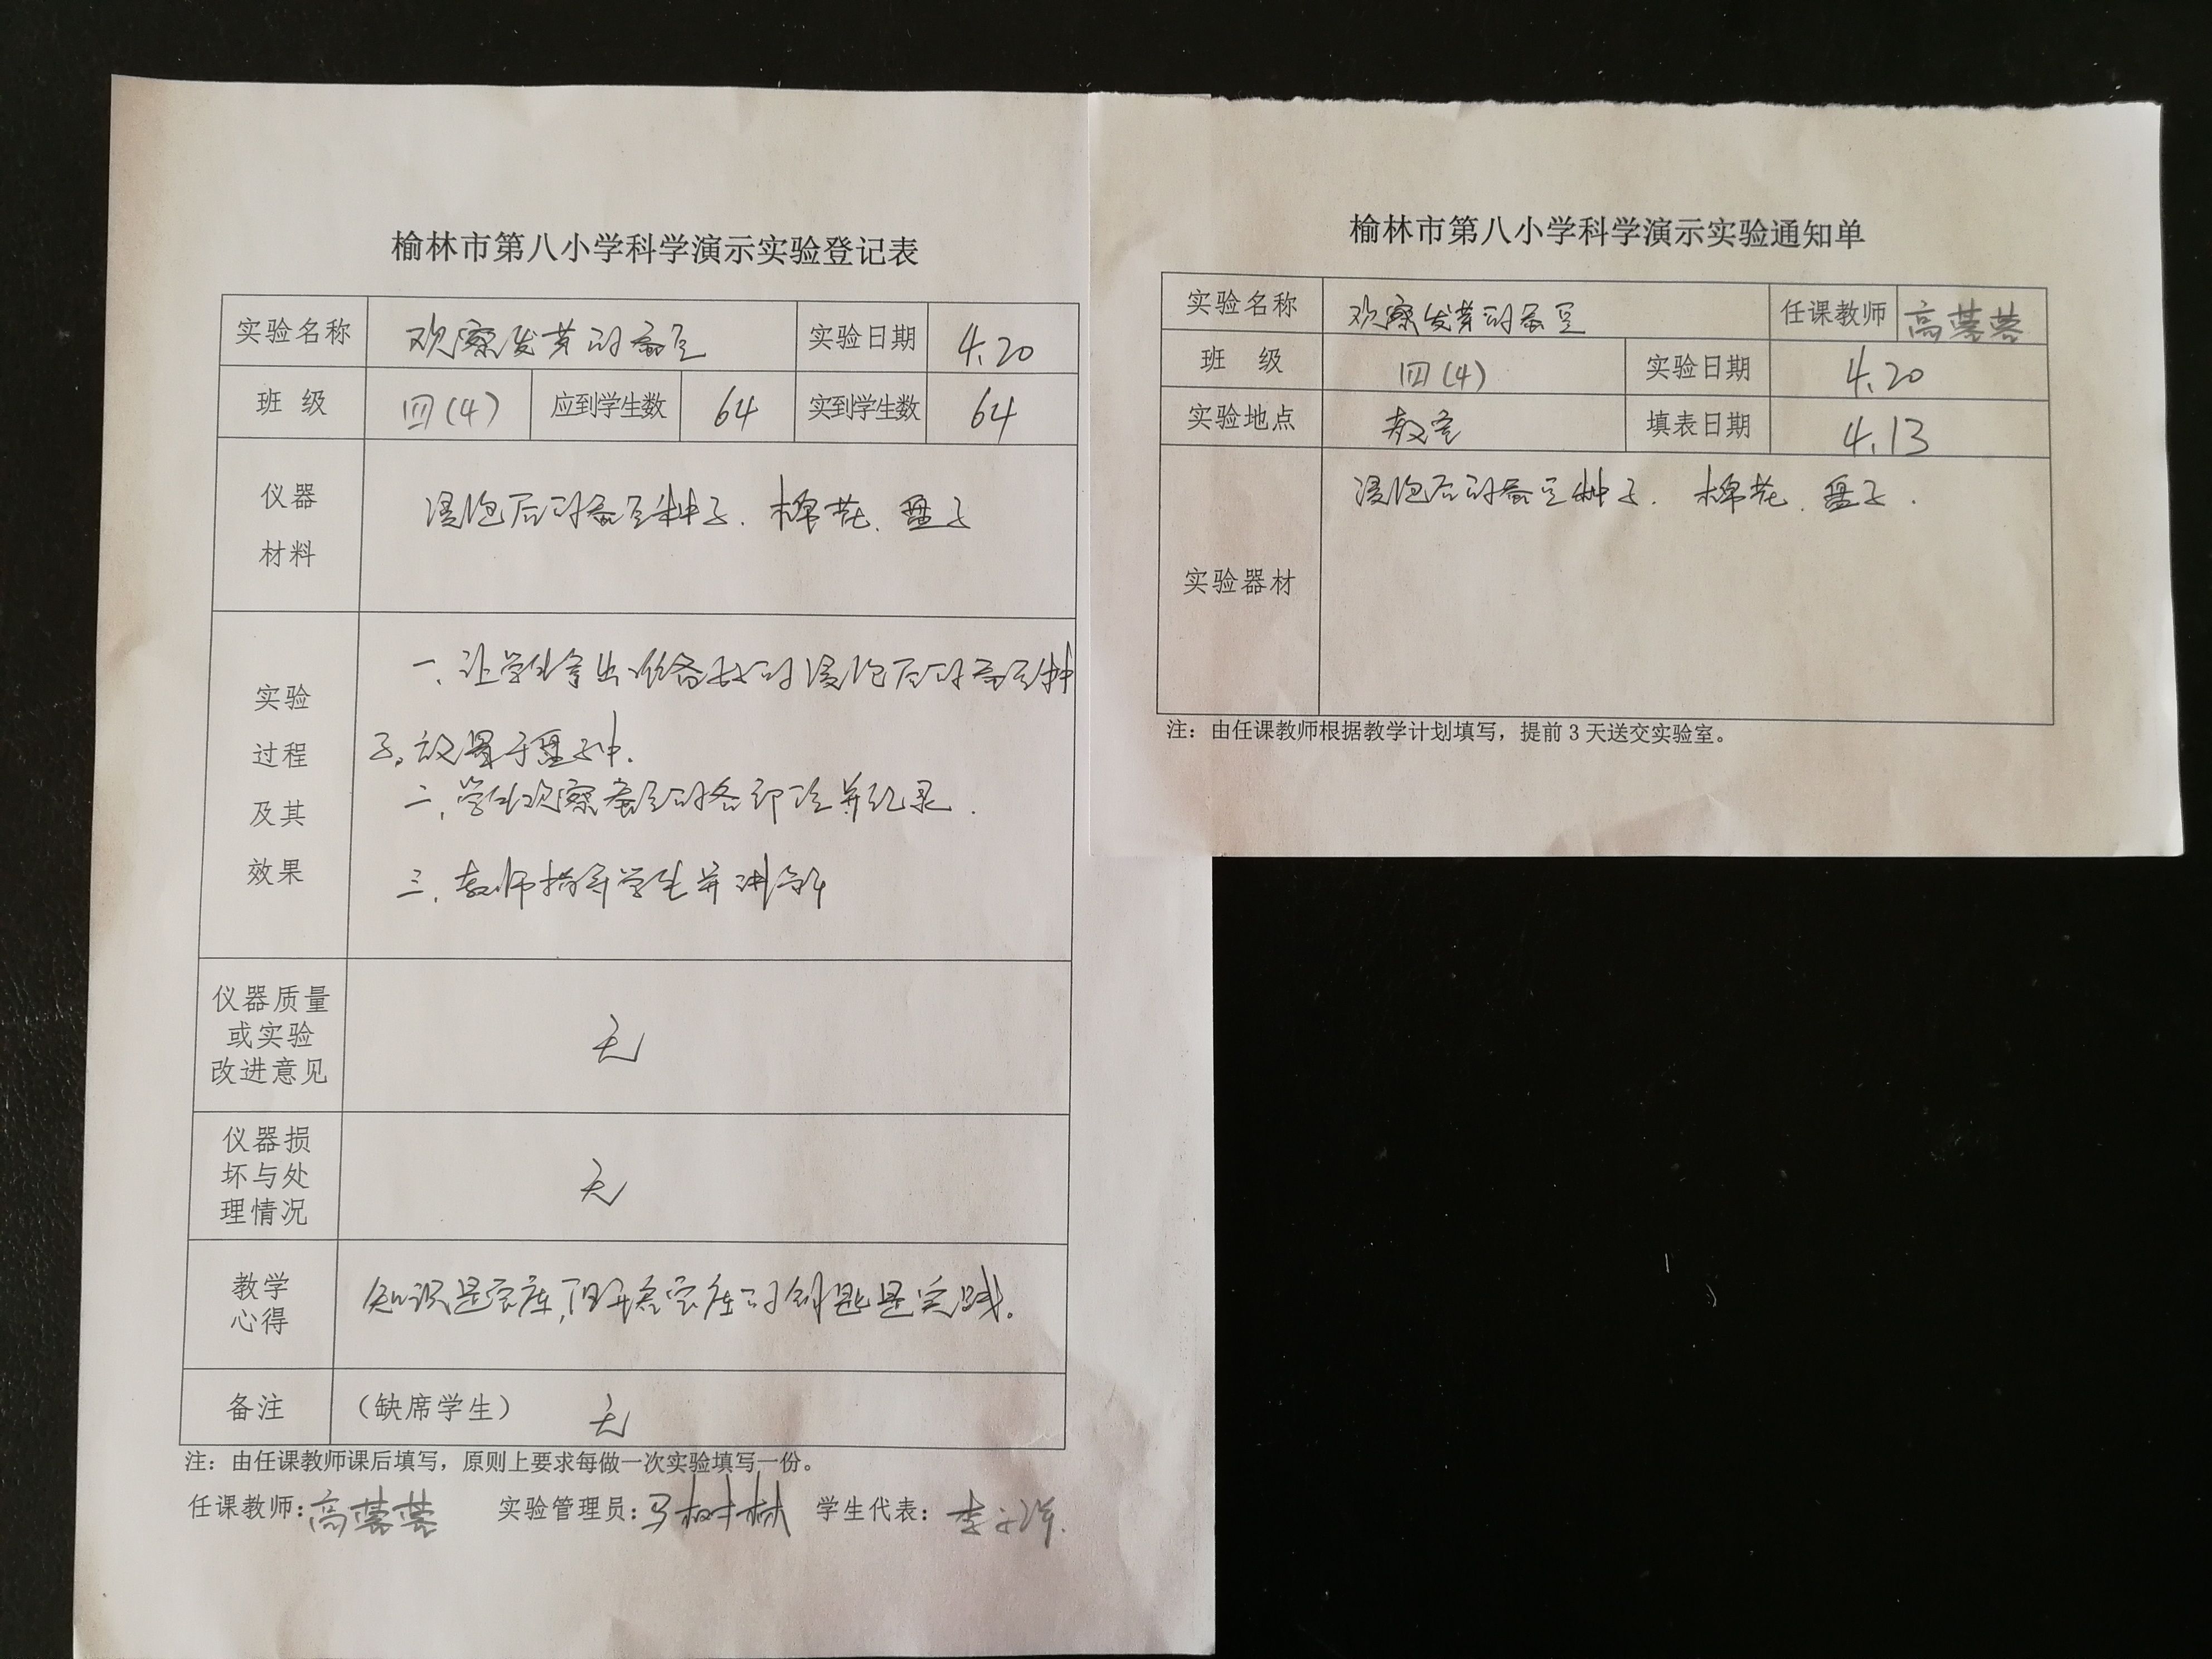 榆林市第八小学科学演示实验登记表
实验名称 观察发芽的蚕豆 实验日期 4.20
班 级 四(4) 应到学生数 64 实到学生数 64
仪器
材料
浸泡后的蚕豆种子、棉花、盘子
实验
过程
及其
效果
一、让学生拿出准备好的浸泡后的蚕豆种
子。放置于盘子中.
二、学生观察蚕豆的各部位并记录.
三、教师指导学生并讲解
仪器质量
或实验
改进意见
无
仪器损
坏与处
理情况
无
教学
心得
知识是宝库,但开启宝库的钥匙是实践。
备注 (缺席学生) 无
注：由任课教师课后填写，原则上要求每做一次实验填写一份。
任课教师:高蓉蓉 实验管理员:马树林 学生代表:李
榆林市第八小学科学演示实验通知单
实验名称 观察发芽的蚕豆 任课教师 高蓉蓉
班 级 四(4) 实验日期 4.20
实验地点 教室 填表日期 4.13
实验器材
浸泡后的蚕豆种子、棉花、盘子.
注：由任课教师根据教学计划填写，提前 3 天送交实验室。